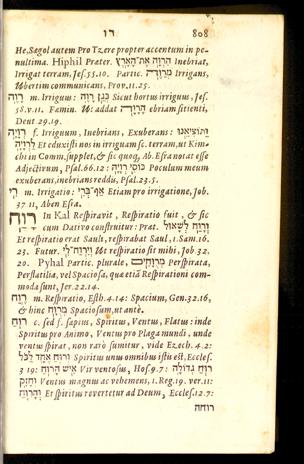 רו 808
He, Segol autem Pro Tzere propter accentum in pe-
nultima. Hiphil Præter. הִרְוָה אֶת־הָאָרֶץ Inebriat,
Irrigat terram, Jes. 55. 10. Partic. מַרְוֶה Irrigans,
Ubertim communicans, Prov. 11. 25.
רָוֶה m. Irriguus: כְּגַן רָוֶה Sicut hortus irriguus, Jes.
58. v. 11. Fœmin. Ut addat הָרָוָה ebriam sitienti,
Deut 29. 19.
רְוָיָה f. Irriguum, Inebrians, Exuberans: וַתּוֹצִיאֵנוּ
לָרְוָיָה Et eduxisti nos in irriguam sc. terram, ut Kim-
chi in Comm. supplet, & sic quoq, Ab. Esra notat esse
Adjectivum, Psal. 66. 12: כּוֹסִי רְוָיָה Poculum meum
exuberans, inebrians reddu, Psal. 23. 5.
רִי m. Irrigatio: אַף־בְּרִי Etiam pro irrigatione, Job.
37 11, Aben Esra.
רָוַח In Kal Respiravit, Respiratio fuit, & sic
cum Dativo construitur: Præt. וְרָוַח לְשָׁאוּל
Et respiratio erat Sauli, respirabat Saul, 1. Sam. 16.
23. Futur. וְיִרְוַח־לִי Ut respiratio sit mihi, Job 32.
20. Pyhal Partic. plurale, מְרֻוָּחִים Perspirata,
Perflatilia, vel Spaciosa, quæ etiã Respirationi com-
moda sunt, Jer. 22. 14.
רֶוַח m. Respiratio, Esth. 4. 14: Spacium, Gen. 32. 16,
& hinc מְרֻוָּח Spaciosum, ut antè.
רוּחַ c. sed f. sæpius, Spiritus, Ventus, Flatus: inde
Spiritus pro Animo, Ventus pro Plaga mundi, unde
ventus spirat, non rarò sumitur, vide Ezech. 4 2:
וְרוּחַ אֶחָד לַכֹּל Spiritus unus omnibus istis est, Eccles.
3 19: אִישׁ הָרוּחַ Vir ventosus, Hos. 9. 7: רוּחַ גְּדוֹלָה
וְחָזָק Ventus magnus ac vehemens, 1. Reg. 19. ver. 11:
וְהָרוּחַ Et Spiritus revertetur ad Deum, Eccles. 12. 7:
רוחה